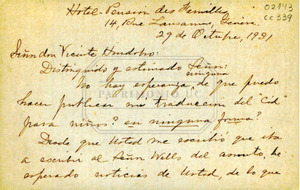 Hotel-Pension des Familles
14, Rue Lausanne, Genève
02143
cc 339
29 de Octubre, 1931
Señor don Vicente Huidobro:
Distinguido y estimado Señor:
ninguna
No hay esperanza de que puedo
hacer publicar mi traduccion del "Cid"
para niños? en ninguna forma?
Desde que Usted me escribió que iba
a escribir al Señor Wells del asunto, he
esperado noticias de Usted, de lo que